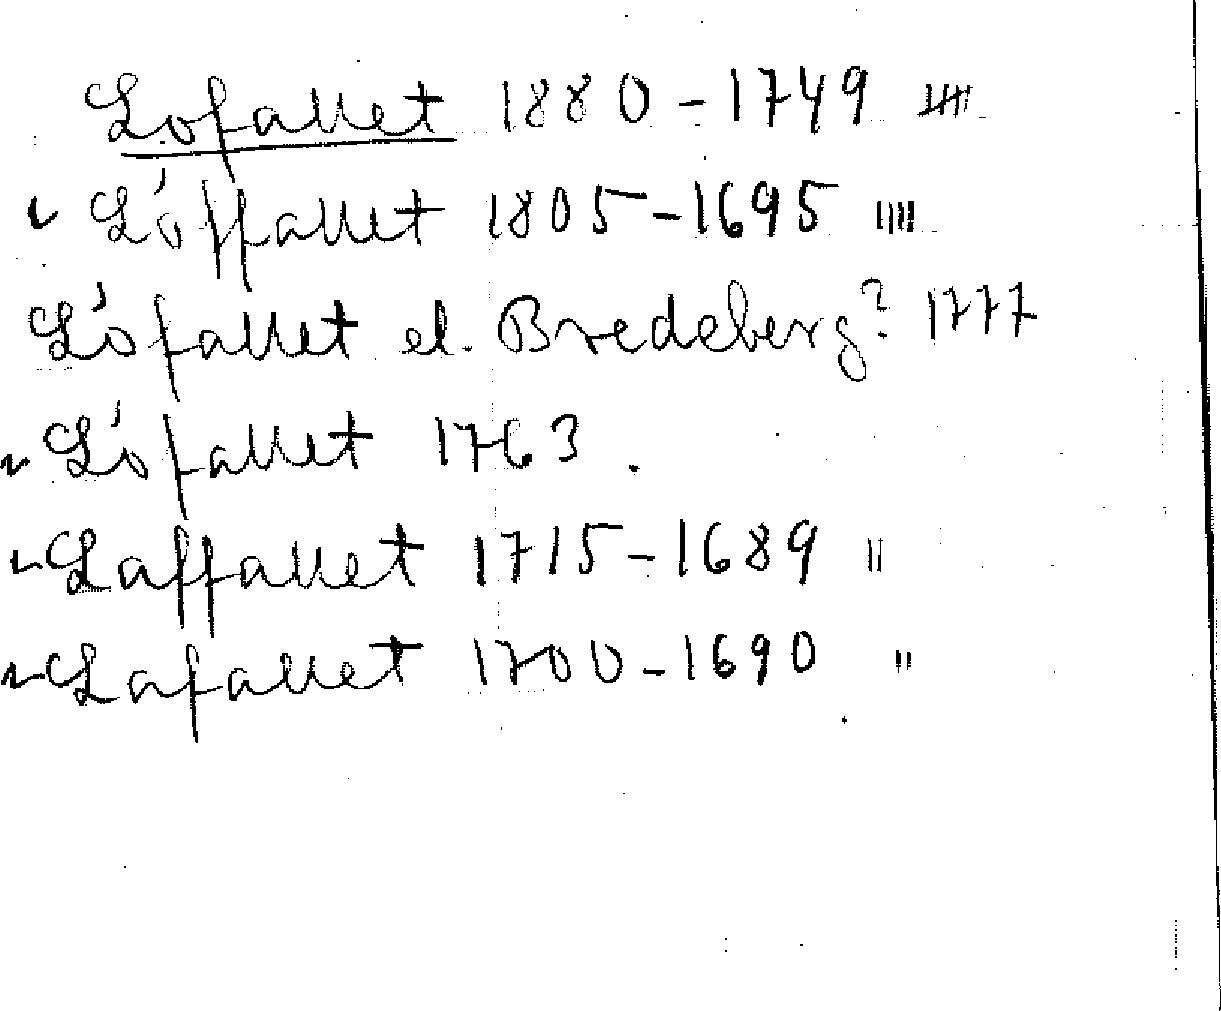 Lofallet 1880-1749 IIII
Lóffallet 1805-1695 IIIII
Lófallet el. Bredeberg? 1777
Lófallet 1763.
Laffallet 1715-1689 II
Lafallet 1700-1690 II